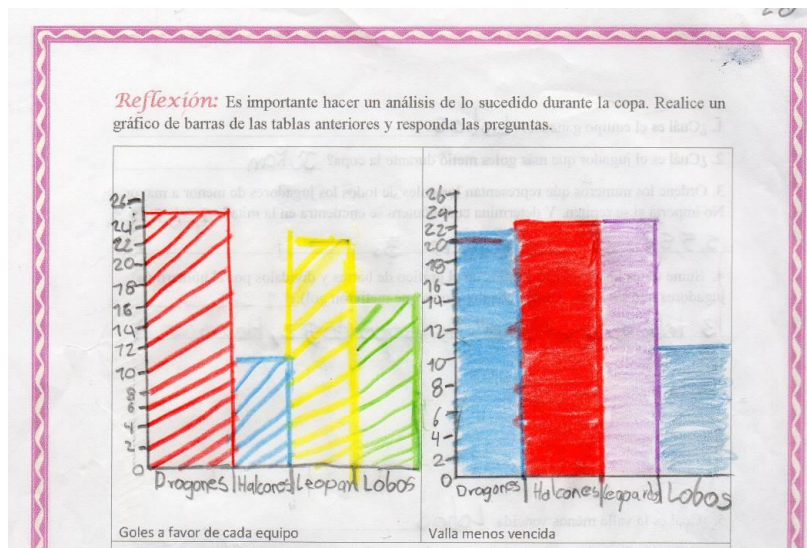 Reflexión: Es importante hacer un análisis de lo sucedido durante la copa. Realice un
gráfico de barras de las tablas anteriores y responda las preguntas.
26
24
22
20
18
16
14
12
10
8
6
4
2
0
Dragones Halcones Leopar Lobos
Goles a favor de cada equipo
26
24
22
20
18
16
14
12
10
8
6
4
2
0
Dragones Halcones Leopardos Lobos
Valla menos vencida